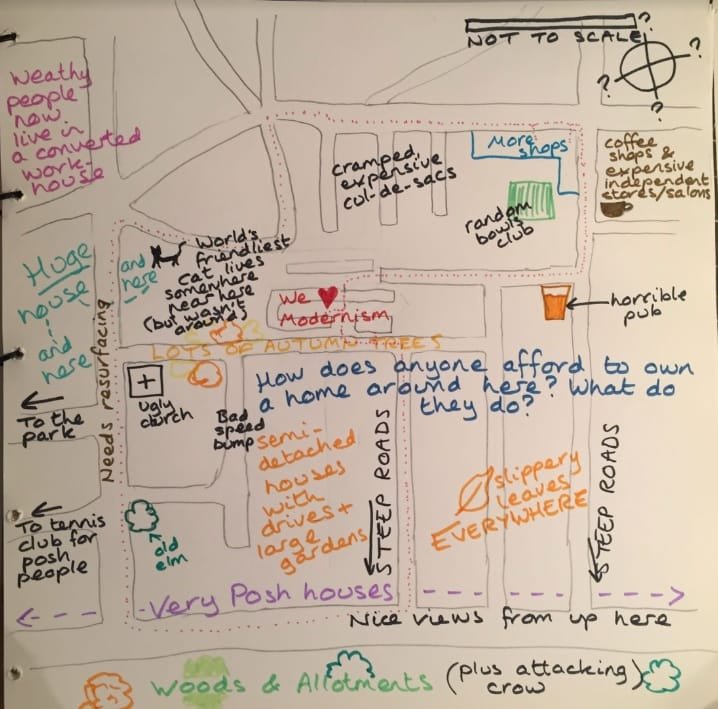 NOT TO SCALE
?
?
?
?
Weathy
people
now
live in
a converted
work-
house
cramped,
expensive
cul-de-sacs
More
shops
random
bowls
club
coffee
shops &
expensive
independent
stores/salons
Huge
house
and
here
and
here
World's
friendliest
cat lives
somewhere
near here
(but wasn't
around)
We ♥
Modernism
horrible
pub
LOTS OF AUTUMN TREES
Needs resurfacing
To the
park
ugly
church
Bad
speed
bump
How does anyone afford to own
a home around here? What do
they do?
semi-
detached
houses
with
drives +
large
gardens
STEEP ROADS
slippery
leaves
EVERYWHERE
STEEP ROADS
To tennis
club for
posh
people
old
elm
Very Posh houses
Nice views from up here
Woods & Allotments (plus attacking)
crow